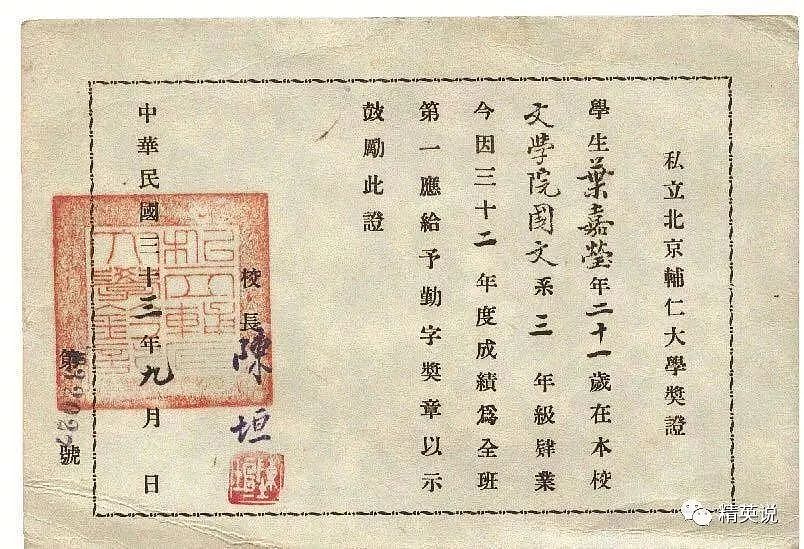 私立北京輔仁大學奬證
學生葉嘉瑩年二十一歲在本校
文學院國文系三年級肄業
今因三十二年度成績爲全班
第一應給予勤字奬章以示
鼓勵此證
校長陳垣
中華民國三十三年九月日
第號
精英说